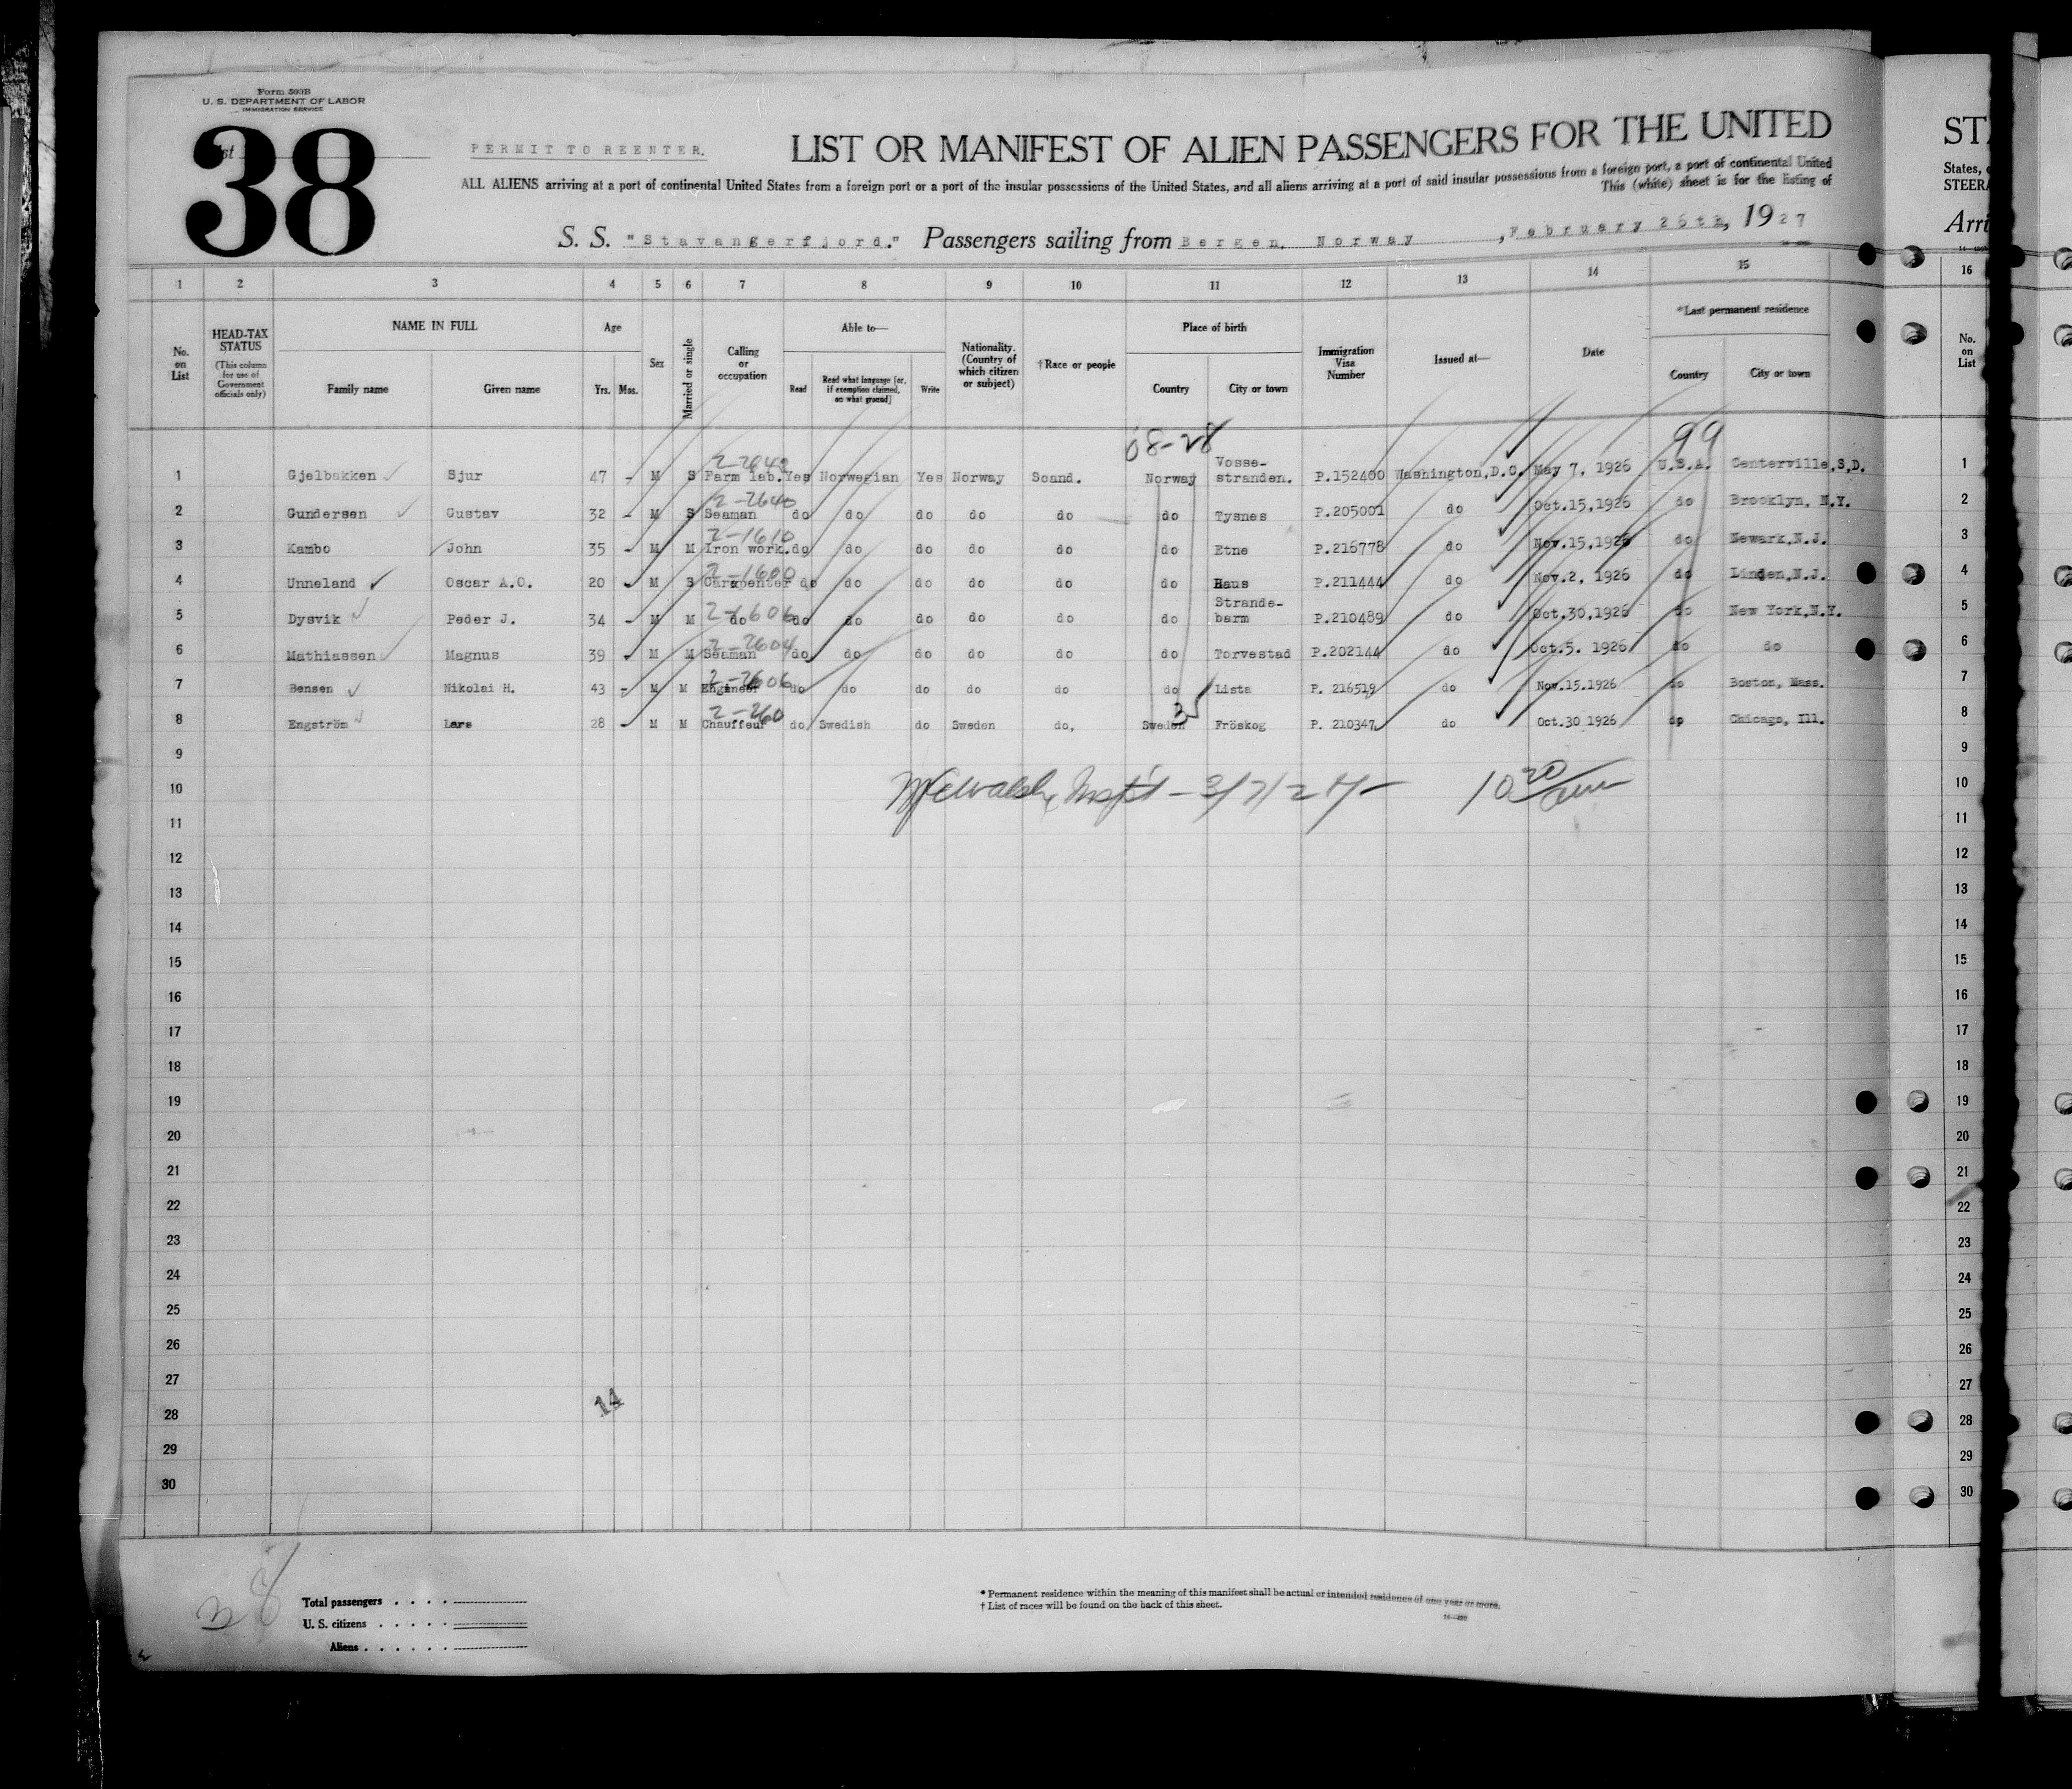 Form 593B
U. S. DEPARTMENT OF LABOR
IMMIGRATION SERVICE
38
PERMIT TO REENTER.
LIST OR MANIFEST OF ALIEN PASSENGERS FOR THE UNITED
ALL ALIENS arriving at a port of continental United States from a foreign port or a port of the insular possessions of the United States, and all aliens arriving at a port of said insular possessions from a foreign port, a port of continental United
This (white) sheet is for the listing of
S. S. "Stavangerfjord." Passengers sailing from Bergen. Norway, February 26th, 1927
1 2 3 4 5 6 7 8 9 10 11 12 13 14 15
No. on List
HEAD-TAX STATUS
(This column for use of Government officials only)
NAME IN FULL
Family name Given name
Age
Yrs. Mos.
Sex
Married or single
Calling or occupation
Able to—
Read
Read what language [or, if exemption claimed, on what ground]
Write
Nationality. (Country of which citizen or subject)
†Race or people
Place of birth
Country City or town
Immigration Visa Number
Issued at—
Date
*Last permanent residence
Country City or town
68-28
99
2-2648
1 Gjelbakken Sjur 47 - M S Farm lab. Yes Norwegian Yes Norway Scand. Norway Vosse-stranden. P.152400 Washington,D.C. May 7, 1926 U.S.A. Centerville,S,D.
2-2640
2 Gundersen Gustav 32 - M S Seaman do do do do do do Tysnes P.205001 do Oct.15,1926 do Brooklyn, N.Y.
2-1610
3 Kambo John 35 - M M Iron work. do do do do do do Etne P.216778 do Nov.15,1926 do Newark,N.J.
2-1600
4 Unneland Oscar A.O. 20 - M S Carpenter do do do do do do Haus P.211444 do Nov.2, 1926 do Linden,N.J.
2-1606
5 Dysvik Peder J. 34 - M M do do do do do do do Strande-barm P.210489 do Oct.30,1926 do New York,N.Y.
2-2604
6 Mathiassen Magnus 39 - M M Seaman do do do do do do Torvestad P.202144 do Oct.5. 1926 do do
2-2606
7 Bensen Nikolai H. 43 - M M Engineer do do do do do do Lista P. 216519 do Nov.15.1926 do Boston, Mass.
2-260
3
8 Engström Lars 28 M M Chauffeur do Swedish do Sweden do, Sweden Fröskog P. 210347 do Oct.30 1926 do Chicago, Ill.
9
10 3/7/27 10 20
11
12
13
14
15
16
17
18
19
20
21
22
23
24
25
26
27
28
29
30
14
38
Total passengers
U. S. citizens
Aliens
* Permanent residence within the meaning of this manifest shall be actual or intended residence of one year or more.
† List of races will be found on the back of this sheet.
States,
STEERA
Arri
16
No. on List
1
2
3
4
5
6
7
8
9
10
11
12
13
14
15
16
17
18
19
20
21
22
23
24
25
26
27
28
29
30